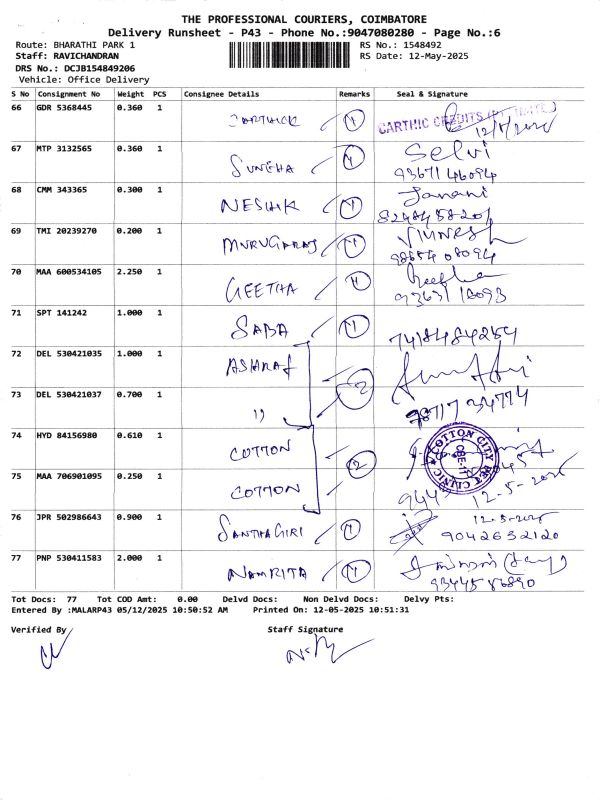 THE PROFESSIONAL COURIERS, COIMBATORE
Delivery Runsheet - P43 - Phone No.:9047080280 - Page No.:6
Route: BHARATHI PARK 1 RS No.: 1548492
Staff: RAVICHANDRAN RS Date: 12-May-2025
DRS No.: DCJB154849206
Vehicle: Office Delivery
S No Consignment No Weight PCS Consignee Details Remarks Seal & Signature
66 GDR 5368445 0.360 1 CARTHIC CREDITS
67 MTP 3132565 0.360 1 SUNEHA Selvi
93671 46094
68 CMM 343365 0.300 1 NESHIK Janani
8248458201
69 TMI 20239270 0.200 1 MURUGARAJ
98654 08094
70 MAA 600534105 2.250 1 GEETHA Geetha
93631 18093
71 SPT 141242 1.000 1 SABA 7418484254
72 DEL 530421035 1.000 1 ASHRAF 2
73 DEL 530421037 0.700 1 11 98717 34774
74 HYD 84156980 0.610 1 COTTON 2 COTTON CITY PET CLINIC
75 MAA 706901095 0.250 1 COTTON 12-5-2025
76 JPR 502986643 0.900 1 SANTHAGIRI 12-5-2025
9042652120
77 PNP 530411583 2.000 1 NAMRITA
93445 86890
Tot Docs: 77 Tot COD Amt: 0.00 Delvd Docs: Non Delvd Docs: Delvy Pts:
Entered By :MALARP43 05/12/2025 10:50:52 AM Printed On: 12-05-2025 10:51:31
Verified By Staff Signature